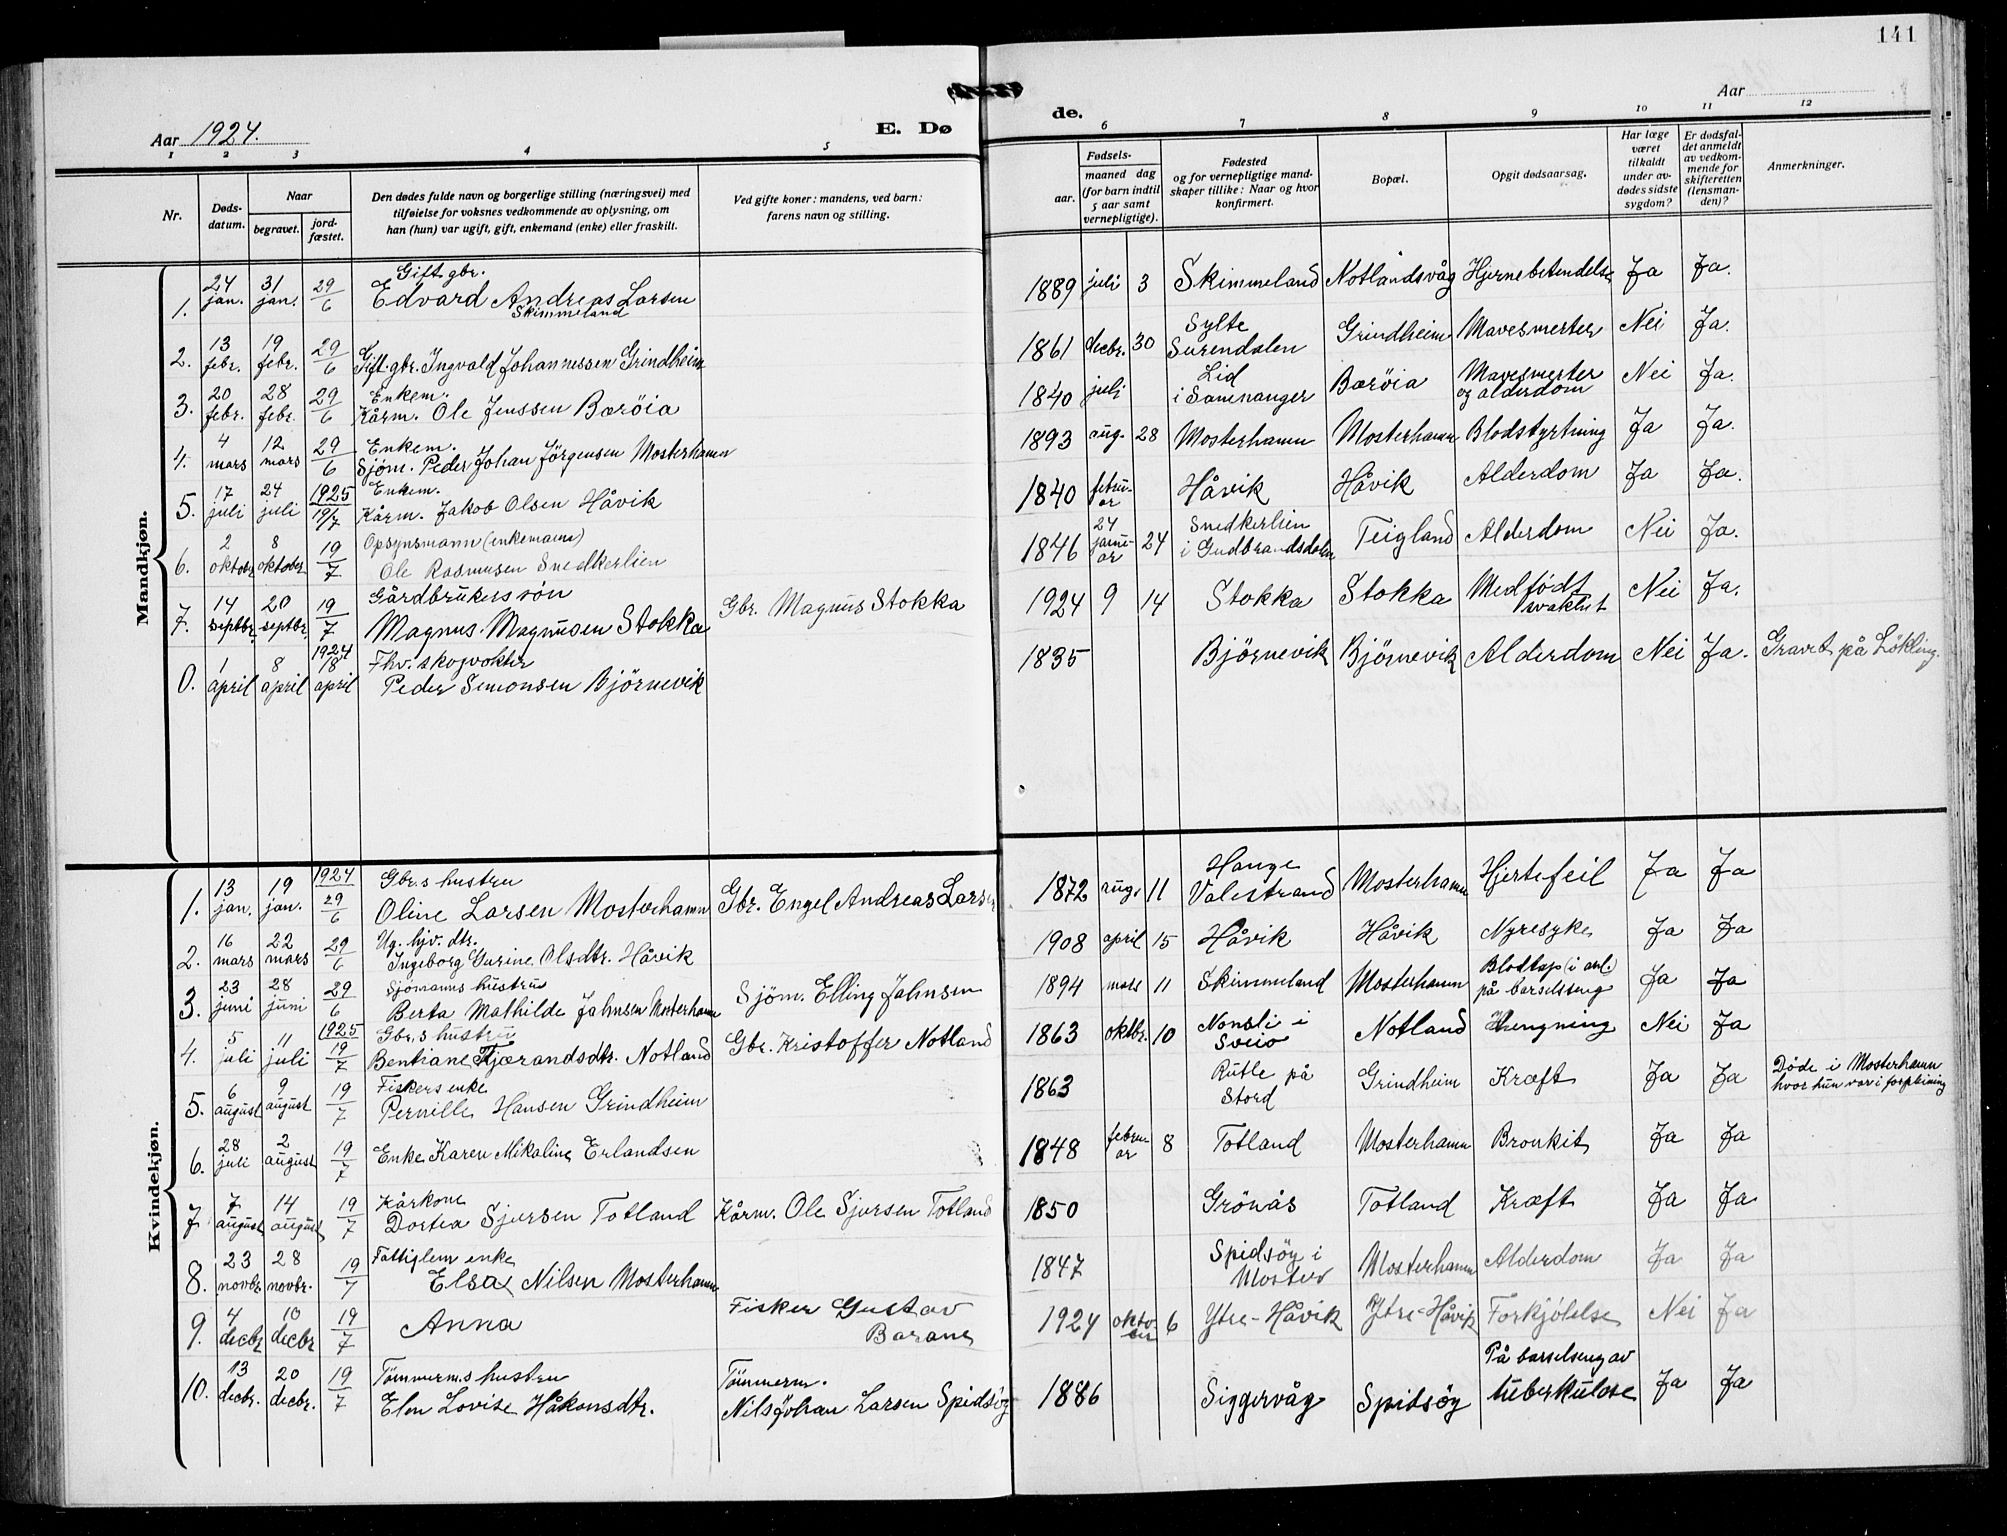 141
Aar 1924.
E. Døde.
Aar
1 2 3 4 5 6 7 8 9 10 11 12
Nr.
Døds-
datum.
Naar
begravet.
jord-
fæstet.
Den dødes fulde navn og borgerlige stilling (næringsvei) med
tilføielse for voksnes vedkommende av oplysning, om
han (hun) var ugift, gift, enkemand (enke) eller fraskilt.
Ved gifte koner: mandens, ved barn:
farens navn og stilling.
Fødsels-
aar.
maaned dag
(for barn indtil
5 aar samt
vernepligtige).
Fødested
og for vernepligtige mand-
skaper tillike: Naar og hvor
konfirmert.
Bopæl.
Opgit dødsaarsag.
Har læge
været
tilkaldt
under av-
dødes sidste
sygdom?
Er dødsfal-
det anmeldt
av vedkom-
mende for
skifteretten
(lensman-
den)?
Anmerkninger.
Mandkjøn.
1. 24 jan. 31 jan. 29/6 Gift gbr.
Edvard Andreas Larsen
Skimmeland
1889 juli 3 Skimmeland Notlandsvåg Hjernebetendelse Ja Ja.
2. 13 febr. 19 febr. 29/6 Gift gbr. Ingvald Johannessen Grindheim
1861 decbr. 30 Sylte
Surendalen Grindheim Mavesmerter Nei Ja.
3. 20 febr. 28 febr. 29/6 Enkem.
Kårm. Ole Jenssen Barøia
1840 juli Lid
i Samnanger Barøia Mavesmerter
og alderdom Nei Ja.
4. 4 mars 12 mars 29/6 Enkem.
Sjøm. Peder Johan Jørgensen Mosterhamn
1893 aug. 28 Mosterhamn Mosterhamn Blodstyrtning Ja Ja.
5. 17 juli 24 juli 1925 19/7 Enkem.
Kårm. Jakob Olsen Håvik
1840 febru-
ar Håvik Håvik Alderdom Ja Ja.
6. 2 oktober 8 oktober 19/7 Opsynsmann (enkemann)
Ole Rasmusen Snedkerlien
1846 24 janu-
ar 24 Snedkerlien
i Gudbrandsdalen Teigland Alderdom Nei Ja.
7. 14 septbr. 20 septbr. 19/7 Gårdbrukers søn
Magnus Magnusen Stokka Gbr. Magnus Stokka
1924 9 14 Stokka Stokka Medfødt
svakhet Nei Ja.
0. 1 april 8 april 1924 18 april Fhv. skogvokter
Peder Simonsen Bjørnevik
1835 Bjørnevik Bjørnevik Alderdom Nei Ja. Gravet på Løkling.
Kvindekjøn.
1. 13 jan. 19 jan. 1924 29/6 Gbr.s hustru
Oline Larsen Mosterhamn Gbr. Engel Andreas Larsen
1872 aug. 11 Hauge
Valestrand Mosterhamn Hjertefeil Ja Ja
2. 16 mars 22 mars 29/6 Ug. hjv. dtr.
Ingeborg Gurine Olsdtr. Håvik
1908 april 15 Håvik Håvik Nyresyke Ja Ja
3. 23 juni 28 juni 29/6 Sjømanns hustru
Berta Mathilde Jahnsen Mosterhamn Sjøm. Elling Jahnsen
1894 mars 11 Skimmeland Mosterhamn Blodtap (i anl.)
på barselseng Ja Ja
4. 5 juli 11 juli 1925 19/7 Gbr.s hustru
Bentiane Kjærandsdtr. Notland Gbr. Kristoffer Notland
1863 oktbr. 10 Nonsli i
Sveio Notland Hengning Nei Ja
5. 6 august 9 august 19/7 Fiskers enke
Pernille Hansen Grindheim
1863 Rutle på
Stord Grindheim Kræft Ja Ja Døde i Mosterhamn
hvor hun var i forpleining
6. 28 juli 2 august 19/7 Enke Karen Mikaline Erlandsen
1848 febru-
ar 8 Totland Mosterhamn Bronkit Ja Ja
7. 7 august 14 august 19/7 Kårkone
Dortea Sjursen Totland Kårm. Ole Sjursen Totland
1850 Grönås Totland Kræft Ja Ja
8. 23 novbr. 28 novbr. 19/7 Fattiglem enke
Elsa Nilsen Mosterhamn
1847 Spidsøy i
Moster Mosterhamn Alderdom Ja Ja
9. 4 decbr 10 decbr 19/7 Anna Fisker Gustav
Barane
1924 okto-
ber 6 Ytre-Håvik Ytre-Håvik Forkjølelse Nei Ja
10. 13 decbr. 20 decbr. 19/7 Tømmerm.s hustru
Elen Lovise Håkonsdtr. Tømmerm.
Nils Johan Larsen Spidsøy
1886 Siggervåg Spidsøy På barselseng av
tuberkulose Ja Ja